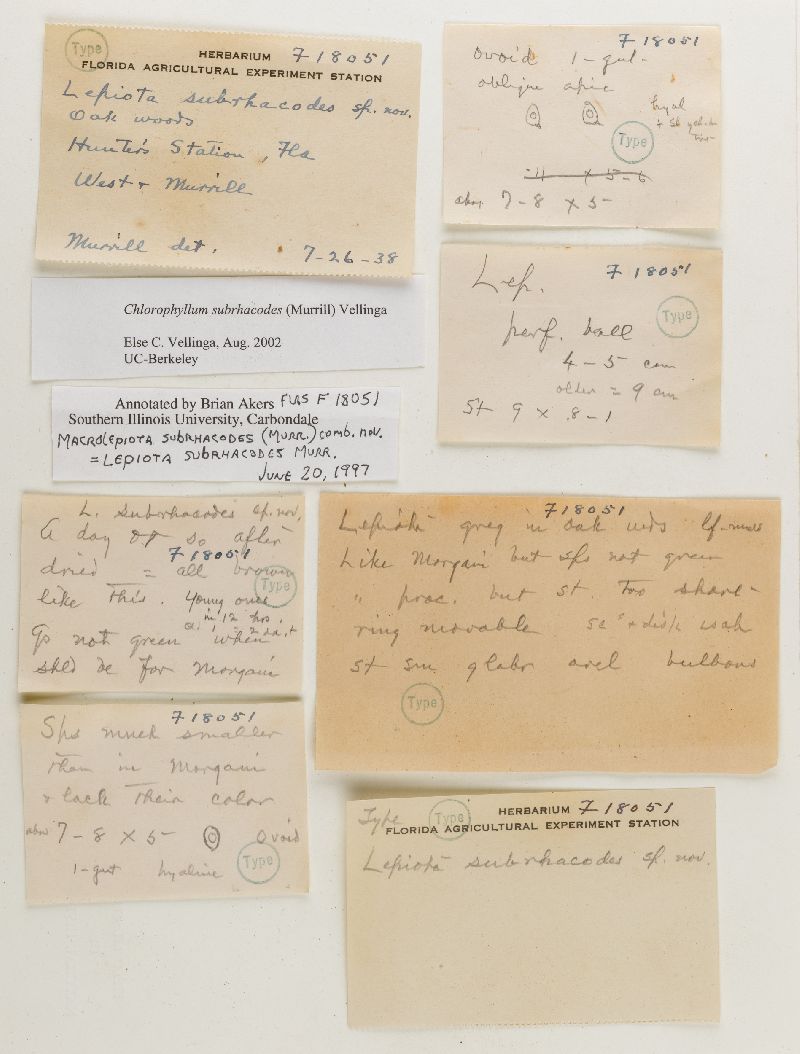 Type
HERBARIUM F18051
FLORIDA AGRICULTURAL EXPERIMENT STATION
Lepiota subrhacodes sp. nov.
Oak woods
Hunter's Station, Fla
West + Murrill
Murrill det. 7-26-38
Chlorophyllum subrhacodes (Murrill) Vellinga
Else C. Vellinga, Aug. 2002
UC-Berkeley
Annotated by Brian Akers FLAS F 18051
Southern Illinois University, Carbondale
MACROLEPIOTA SUBRHACODES (MURR.) comb. nov.
= LEPIOTA SUBRHACODES MURR.
JUNE 20, 1997
F18051
ovoid 1-gut-
oblique apic
hyal
Type
4 x 5-6
7-8 x 5-
Lep. F18051
Type
perf. ball
4-5 cm
older = 9 cm
St 9 x .8-1
L. subrhacodes sp. nov.
A day or so after
F18051
dried = all brown
Type
like this. Young ones
in 12 hrs.
Gs not green when
shld be for Morgani
F18051
Sps much smaller
than in Morgani
+ lack their color
7-8 x 5- Ovoid
1-gut hyaline
Type
F18051
Lepiota greg in oak wds
Like Morgani but sps not green
" proc. but st. too short-
ring movable + disk
st sm glabr bulbous
Type
Type Type
HERBARIUM F18051
FLORIDA AGRICULTURAL EXPERIMENT STATION
Lepiota subrhacodes sp. nov.